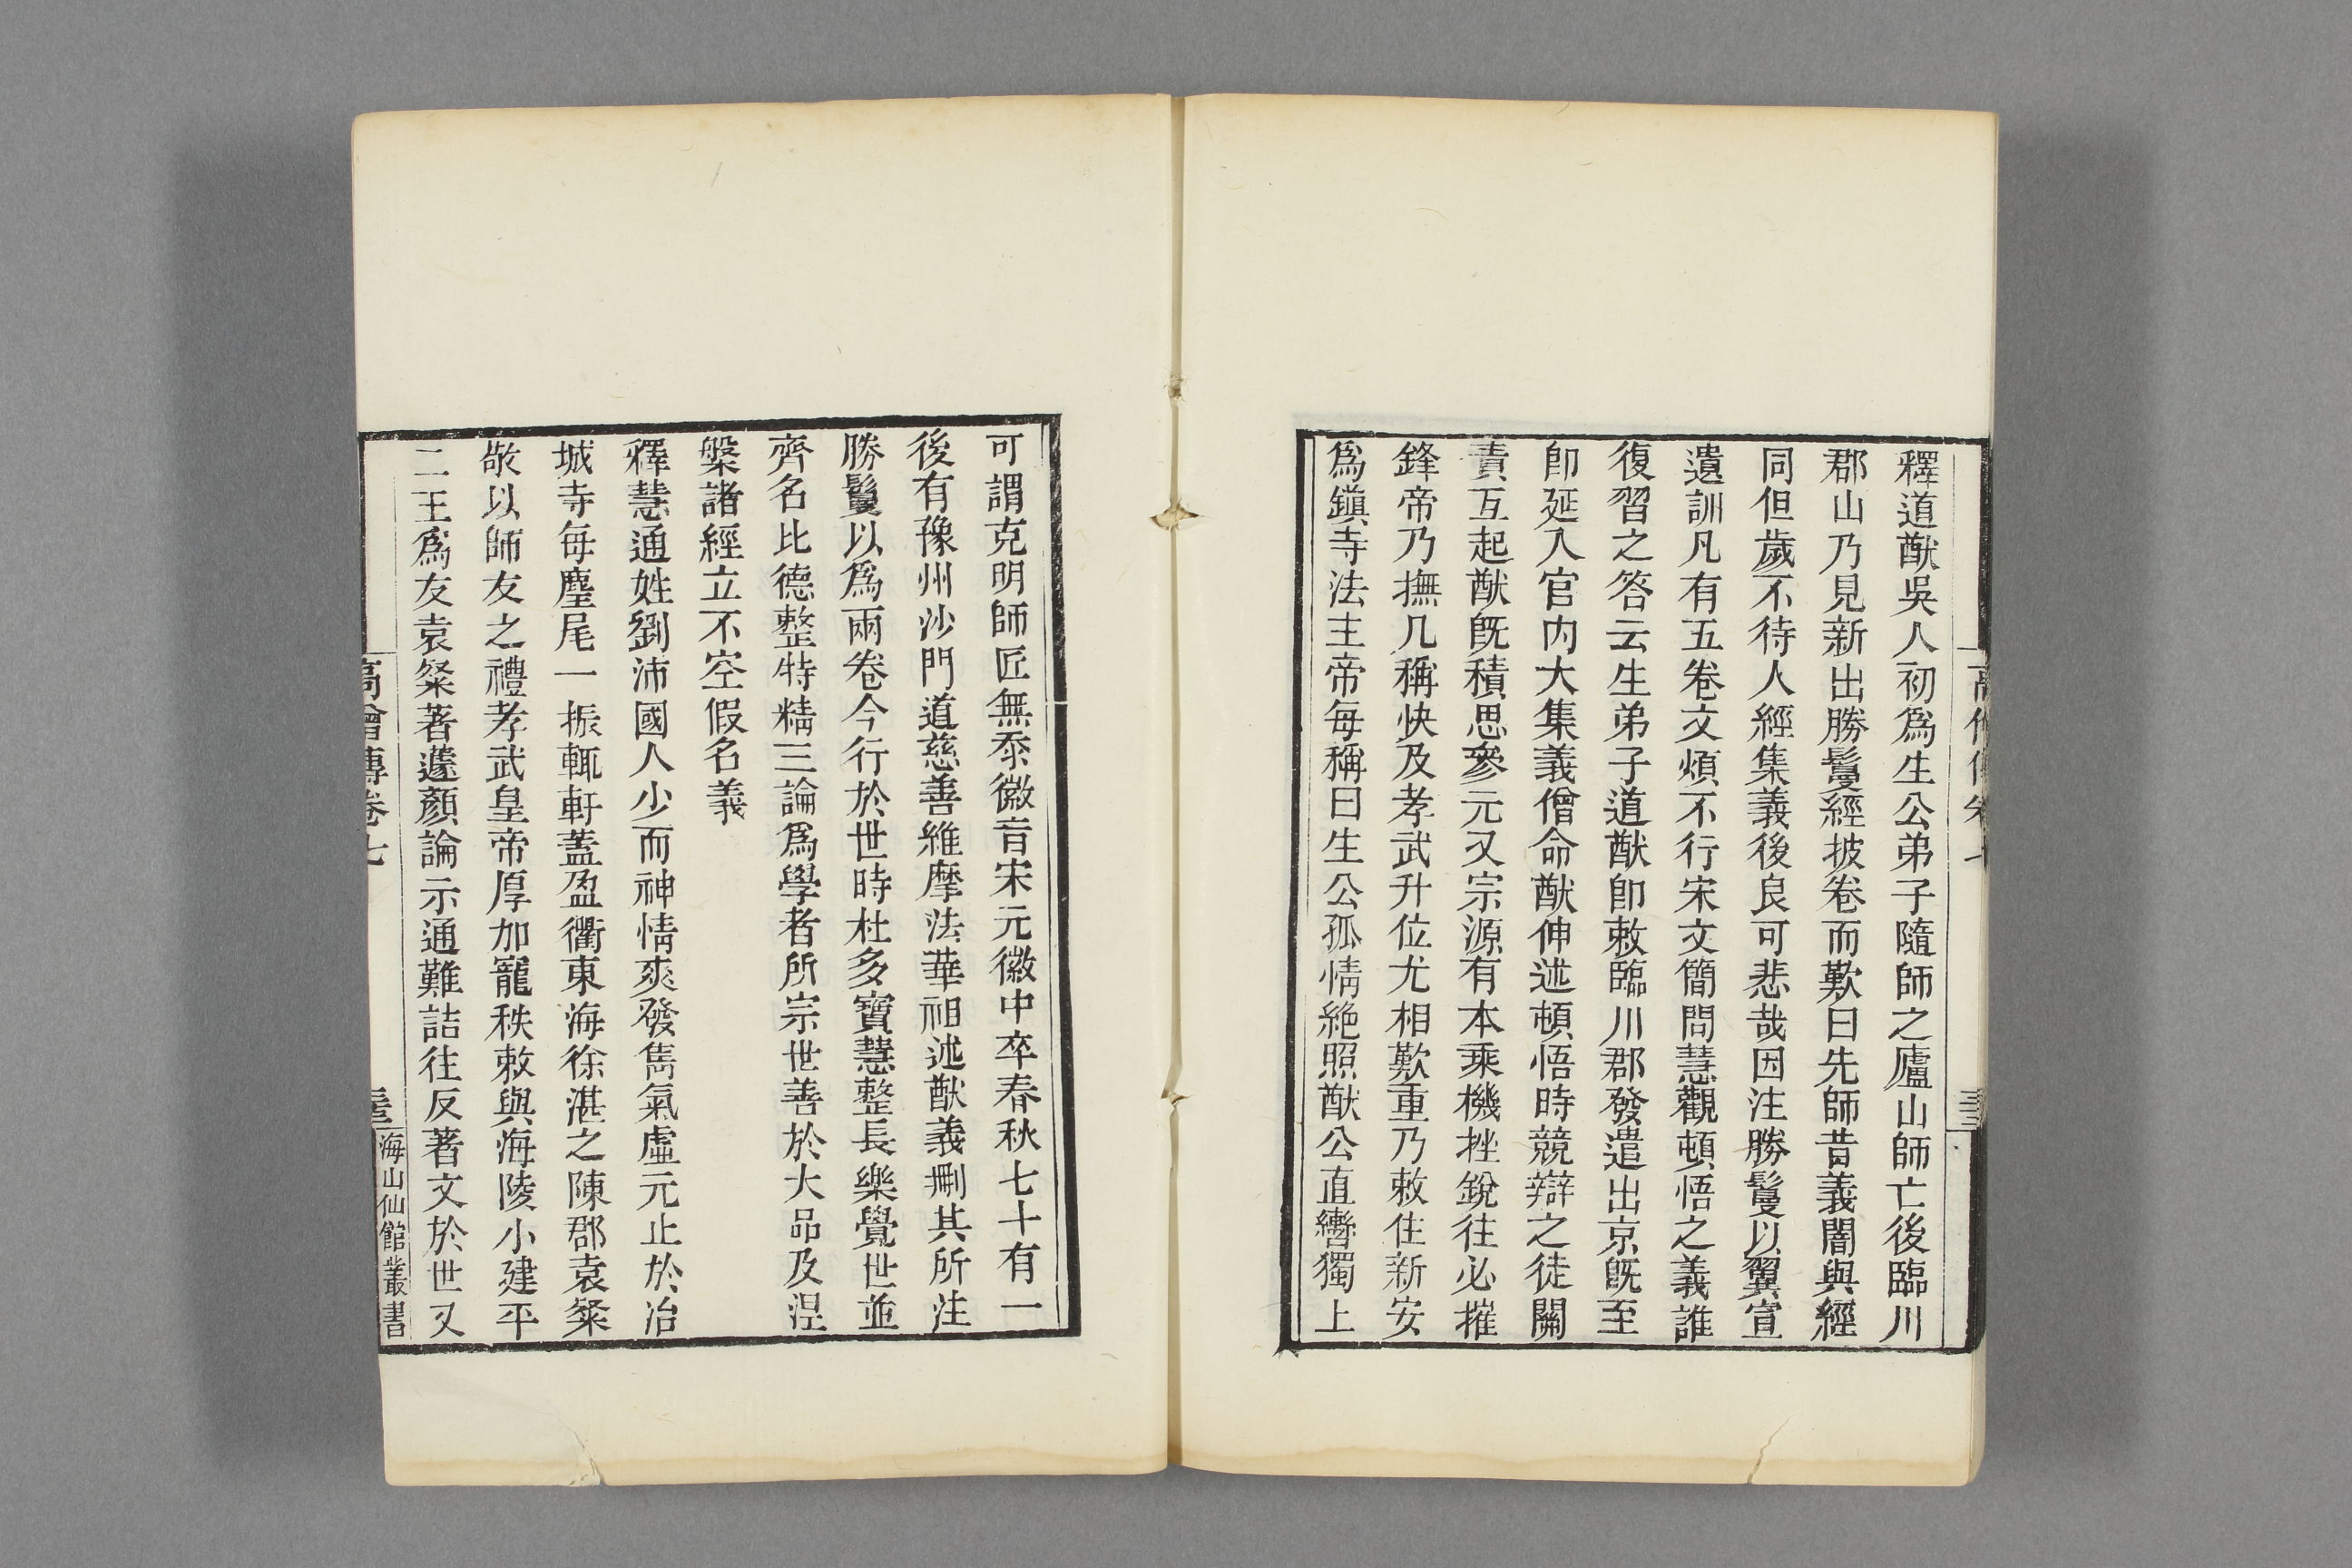 釋道猷吳人初爲生公弟子隨師之廬山師亡後臨川
郡山乃見新出勝鬘經披卷而歎曰先師昔義闇與經
同但歲不待人經集義後良可悲哉因注勝鬘以翼宣
遺訓凡有五卷文煩不行宋文簡問慧觀頓悟之義誰
復習之答云生弟子道猷卽敕臨川郡發遣出京旣至
卽延入官內大集義僧命猷伸述頓悟時競辯之徒關
責互起猷旣積思參元又宗源有本乘機挫銳往必摧
鋒帝乃撫几稱快及孝武升位尤相歎重乃敕住新安
爲鎭寺法主帝每稱曰生公孤情絶照猷公直轡獨上
可謂克明師匠無忝徽音宋元徽中卒春秋七十有一
後有豫州沙門道慈善維摩法華祖述猷義刪其所注
勝鬘以爲兩卷今行於世時杜多寶慧整長樂覺世並
齊名比德整特精三論爲學者所宗世善於大品及涅
槃諸經立不空假名義
釋慧通姓劉沛國人少而神情爽發雋氣虛元止於冶
城寺每麈尾一振輒軒蓋盈衢東海徐湛之陳郡袁粲
敬以師友之禮孝武皇帝厚加寵秩敕與海陵小建平
二王爲友袁粲著蘧顏論示通難詰往反著文於世又
高僧傳卷七
海山仙館叢書